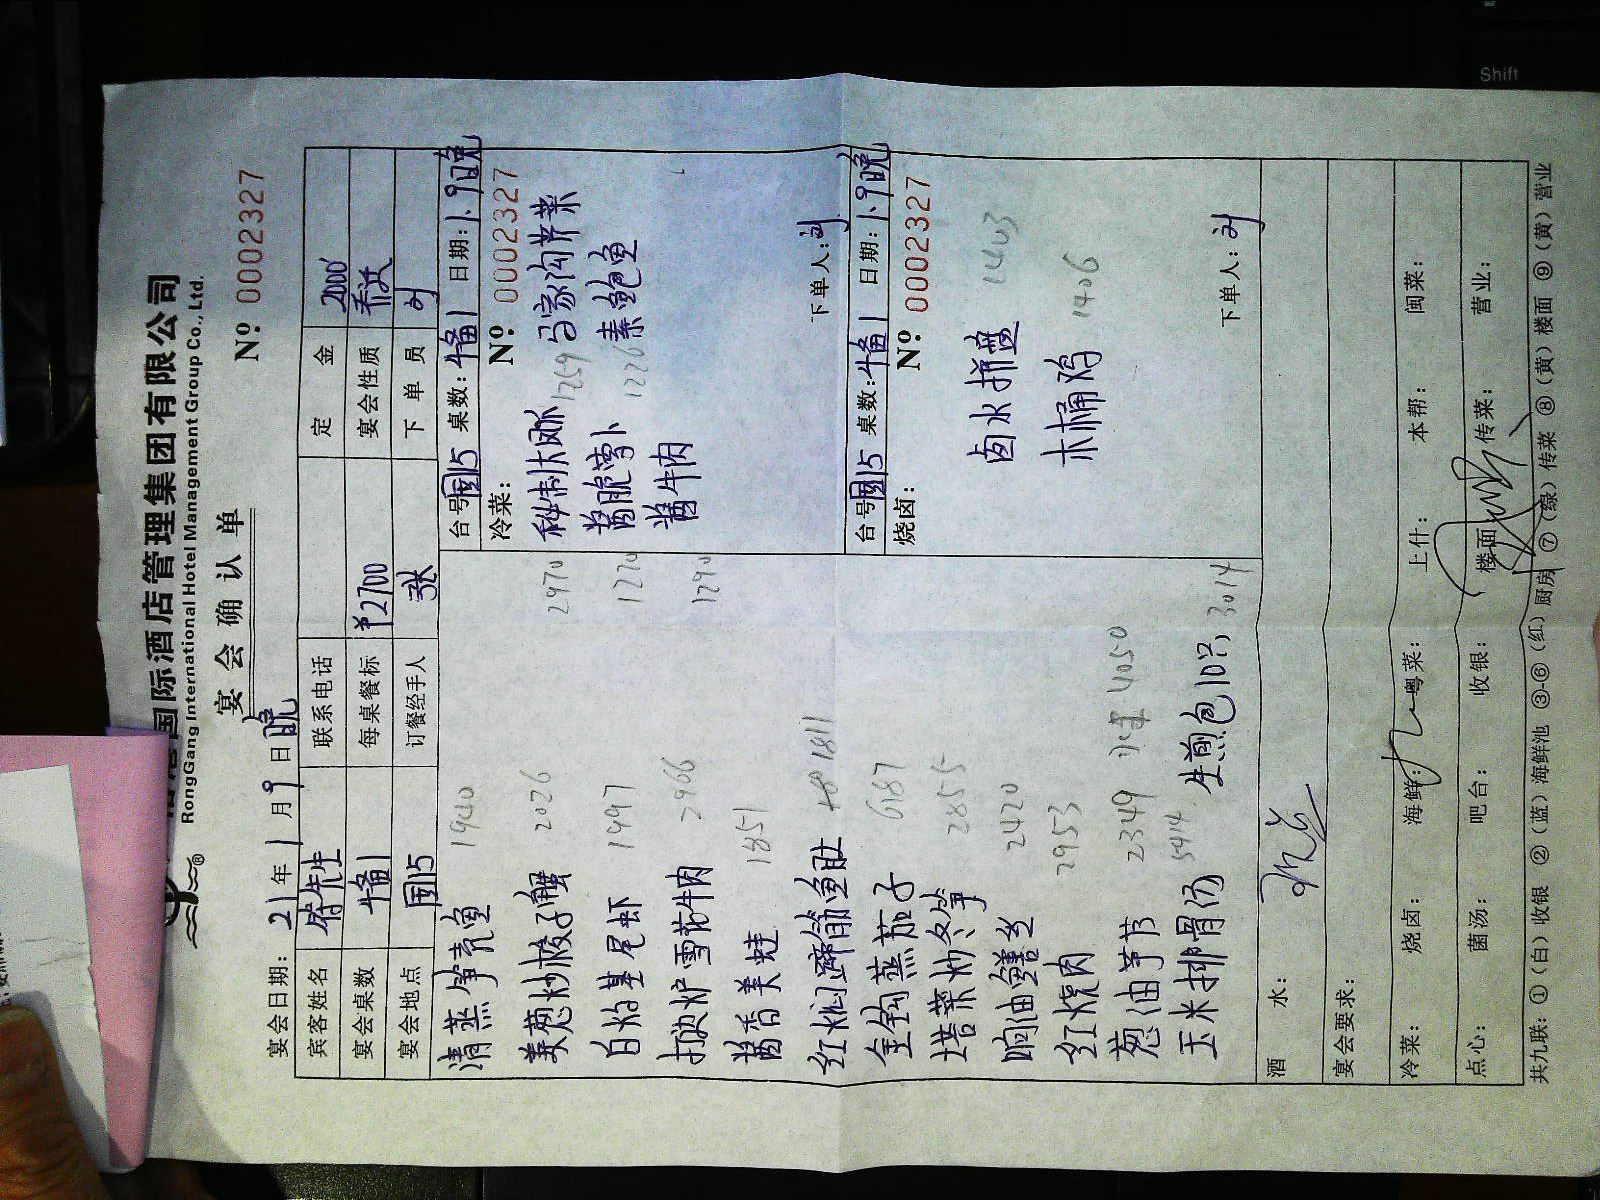 港国际酒店管理集团有限公司
RongGang International Hotel Management Group Co., Ltd.
宴会确认单
№: 0002327
宴会日期: 21年1月9日晚
宾客姓名 符先生 联系电话 定金 2000
宴会桌数 备1 每桌餐标 ¥2700 宴会性质
宴会地点 国15 订餐经手人 张 下单员 刘
清蒸笋壳鱼 1940
姜葱炒梭子蟹 2026
白灼基尾虾 1997
2970
雪花牛肉 2966
1270
酱香美蛙 1851
1290
红焖蹄筋鱼肚 1811
金钩蒸茄子 6187
塔菜炒冬笋 2855
响油鳝丝 2420
红烧肉 2953
葱油芋艿 2349 4050
玉米排骨汤 5414 生煎包10只 3014
台号 国15 桌数: 备1 日期: 1.9晚
冷菜: №: 0002327
秘制大 1259 马家沟芹菜
酱脆萝卜 1226 素鲍鱼
酱牛肉
下单人: 刘
台号 国15 桌数: 备1 日期: 1.9晚
烧卤: №: 0002327
卤水拼盘 1403
木桶鸡 1406
下单人: 刘
酒水:
宴会要求:
冷菜: 烧卤: 海鲜: 粤菜: 上什: 本帮: 闽菜:
点心: 菌汤: 吧台: 收银: 楼面: 传菜: 营业:
共九联: ①(白)收银 ②(蓝)海鲜池 ③-⑥(红)厨房 ⑦(绿)传菜 ⑧(黄)楼面 ⑨(黄)营业
Shift